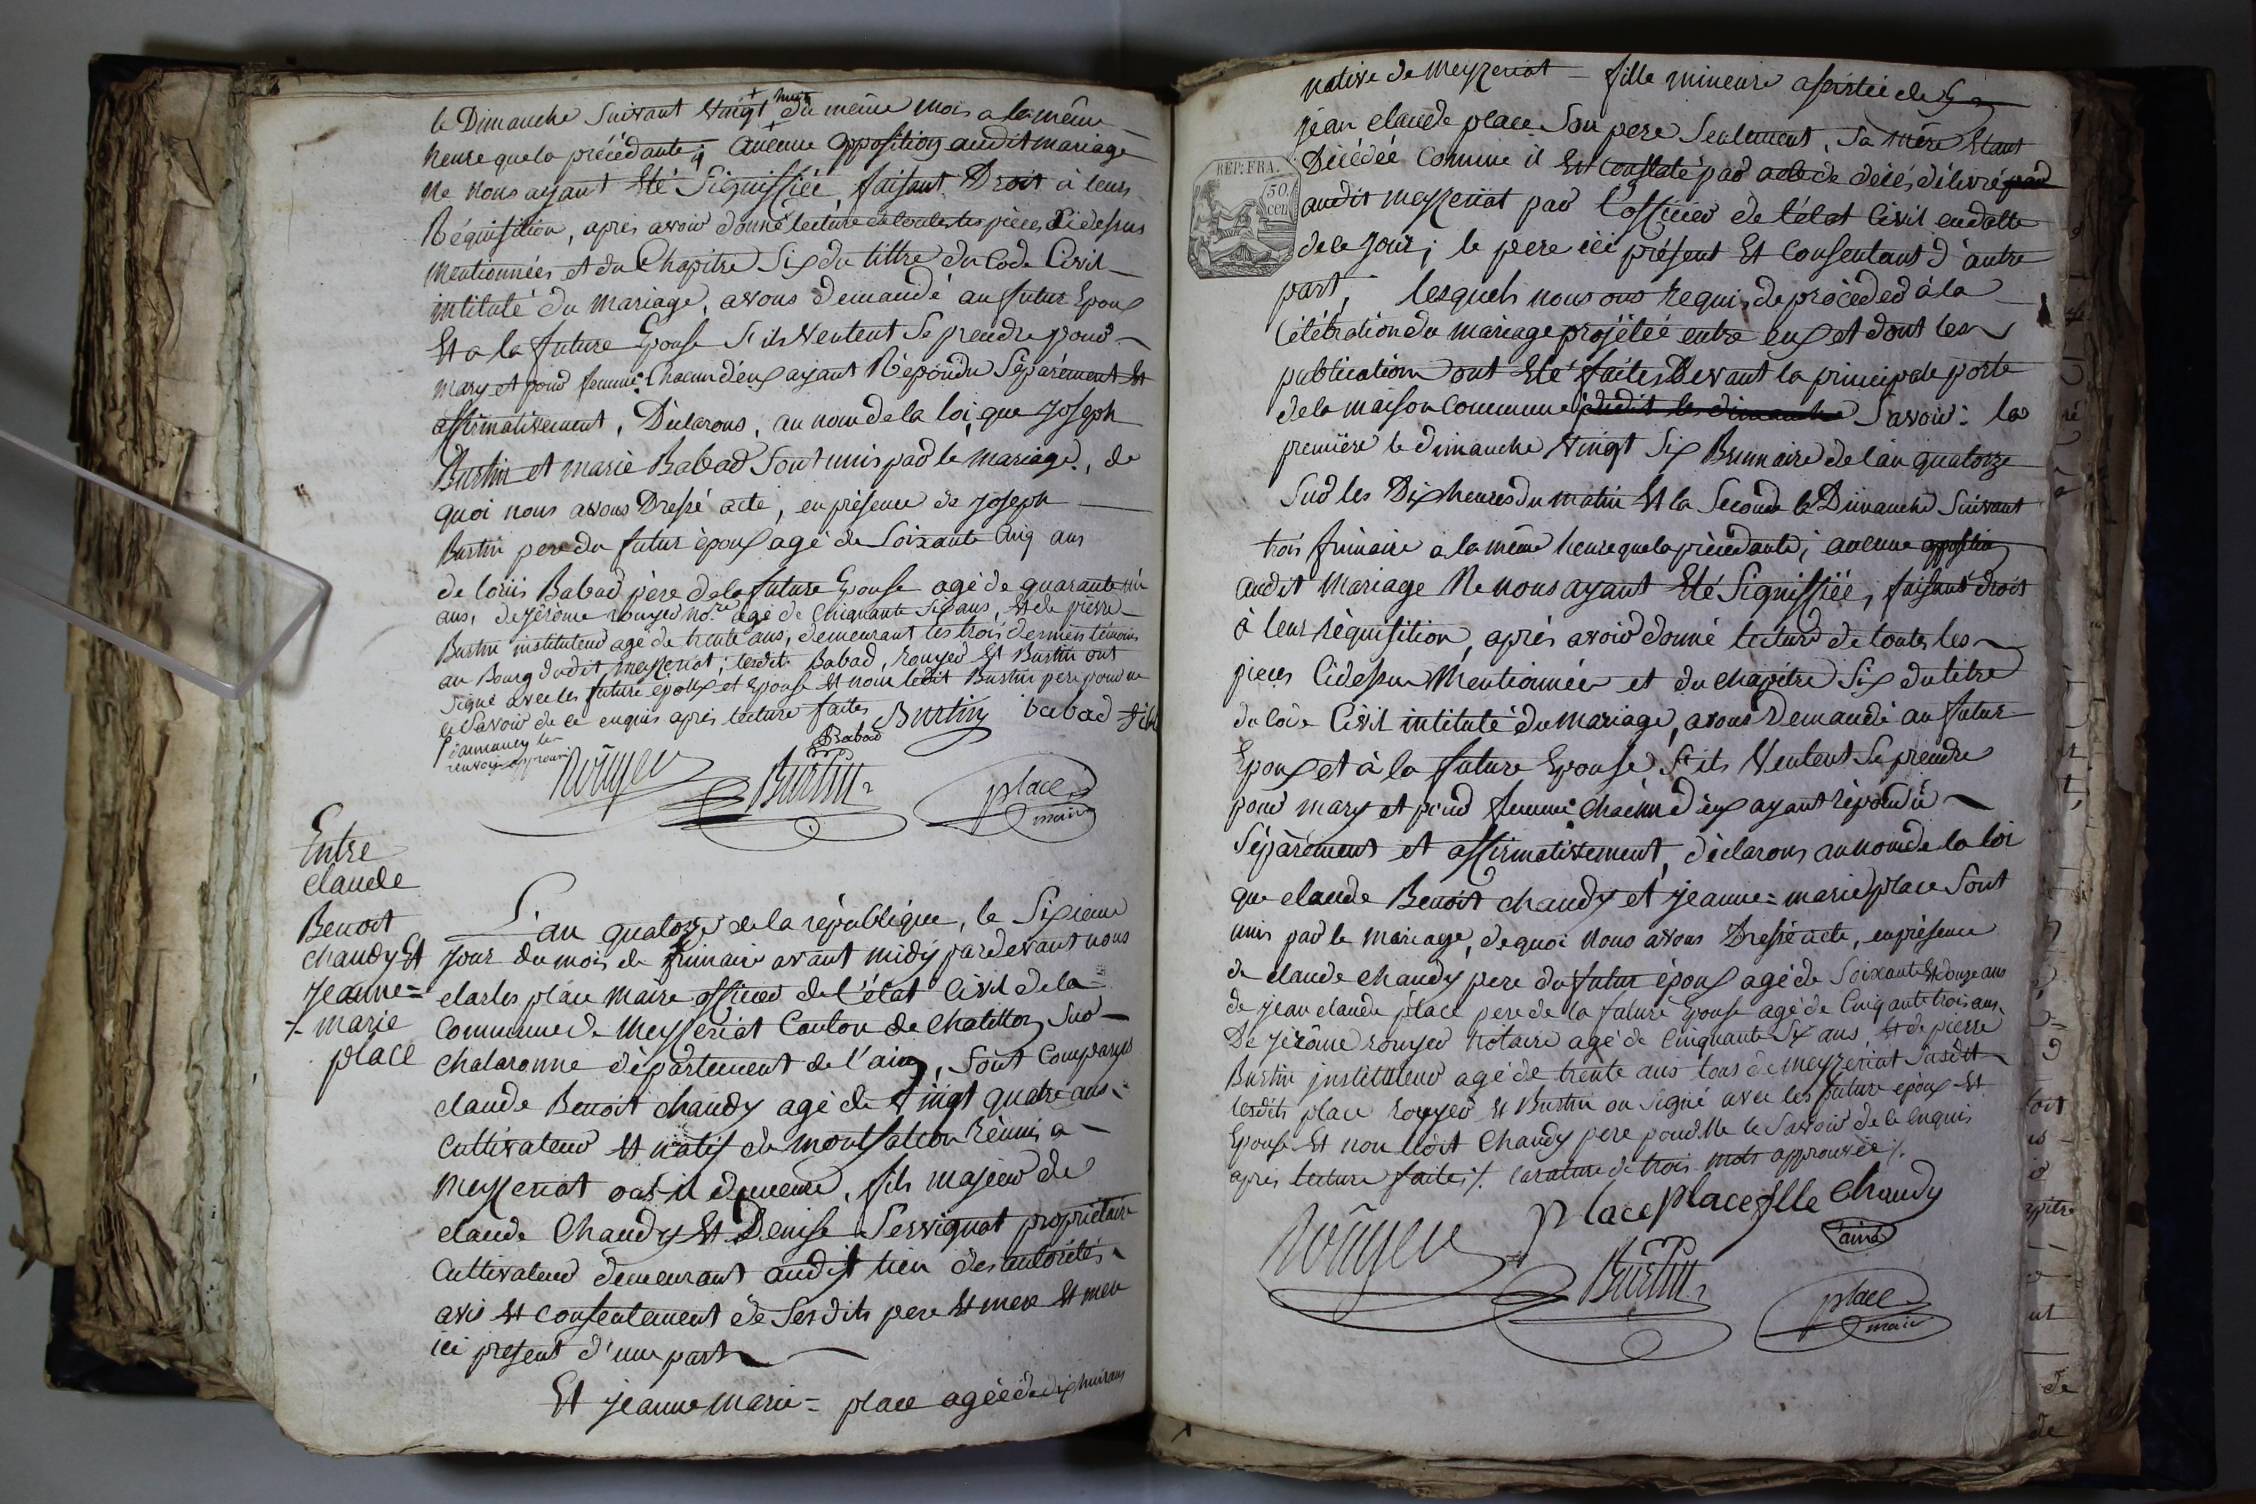 le Dimanche Suivant vingt huit du même mois a la même
heure que la précédante ; aucune opposition audit mariage
ne nous ayant Eté Signiffiée, faisant Droit à leurs
Réquisition, après avoir donné lecture de toutes les pièces Ci dessus
mentionnées et du Chapitre Six du tittre du Code Civil
intitulé du mariage, avons demandé au futur Epoux
Et a la future Epouse S'ils Veulent Se prendre pour
mary et pour femme : Chacun d'eux ayant Répondu Séparément Et
affirmativement, Déclarons, au nom de la loi, que Joseph
Burtin et marie Babad Sont unis par le mariage, de
quoi nous avons Dressé acte, en présence de Joseph
Burtin pere du futur époux agé de Soixante Cinq ans
de louis Babad père de la future Epouse agé de quarante
ans, de Jérôme rouyer no.re agé de Cinquante Six ans, Et de pierre
Burtin instituteur agé de trente ans, demeurant les trois derniers témoins
au Bourg dudit meyzeriat ; lesdits Babad, rouyer Et Burtin ont
signé avec les future époux et Epouse Et non ledit Burtin pere pour ne
le Savoir de ce enquis après lecture faites
Burtin babad fille
renvoy approuvé
Babad
Rouyer Burtin place
maire
Entre
claude
Benoit
chaudy Et
Jeanne=
marie
place
L'an quatorze de la république, le Sixieme
Jour du mois de frimaire avant midy pardevant nous
charles place maire officier de l'état Civil de la
Commune de Meyzeriat Canton de Chatillon Sur
Chalaronne département de l'ain, Sont Comparus
claude Benoit chaudy agé de vingt quatre ans
Cultivateur Et natif de montfalcon Réunis a
Meyzeriat où il demeure, fils majeur de
claude Chaudy Et Denise Servignat propriétaire
Cultivateur demeurant audit lieu des autorités
avis Et consentement de Ses dits pere Et mere Et mere
ici présent d'une part
Et jeanne Marie = place agée de dix huit ans
native de Meyzeriat fille mineure assistée de
jean claude place Son pere Seulement, Sa mère Etant
Décédée Comme il Est Constaté par acte de décès délivré
audit meyzeriat par l'officier de l'état Civil en datte
de ce jour ; le pere ici présent Et Consentant d'autre
part, lesquels nous ons Requis de procéder à la
Célébration du mariage projété entre eux et dont les
publication ont Eté faites Devant la principale porte
de la maison Commune Savoir : la
première le dimanche Vingt Six Brumaire de l'an quatorze
Sur les Dix heures du matin Et la Seconde le Dimanche Suivant
trois frimaire a la même heure que la précédante ; aucune opposition
audit Mariage Ne nous ayant Eté Signiffiée, faisant droit
à leur réquisition, après avoir donné lecture de toutes les
pieces Ci dessus Mentionnées et du chapitre Six du titre
du Code Civil intitulé du mariage, avons Demandé au futur
Epoux et à la future Epouse S'ils Veulent Se prendre
pour mary et pour femme : chacun d'eux ayant répondu
Séparément et affirmativement, déclarons au nom de la loi
que claude Benoit chaudy et jeanne = marie place Sont
unis par le mariage, de quoi Nous avons Dressé acte, en présence
de claude chaudy pere du futur époux agé de Soixante Et douze ans
de jean claude place pere de la future Epouse agé de Cinquante trois ans
De jérôme rouyer Notaire agé de Cinquante Six ans, Et de pierre
Burtin jnstituteur agé de trente ans tous de meyzeriat Susdit
lesdits place rouyer Et Burtin on Signé avec les future époux Et
Epouse Et non ledit Chaudy pere pour Ne le Savoir de ce enquis
après lecture faites /. la rature de trois mots approuvée /.
REP. FRA.
50.
cen
place place fille Chaudy
Rouyer Burtin
place
maire